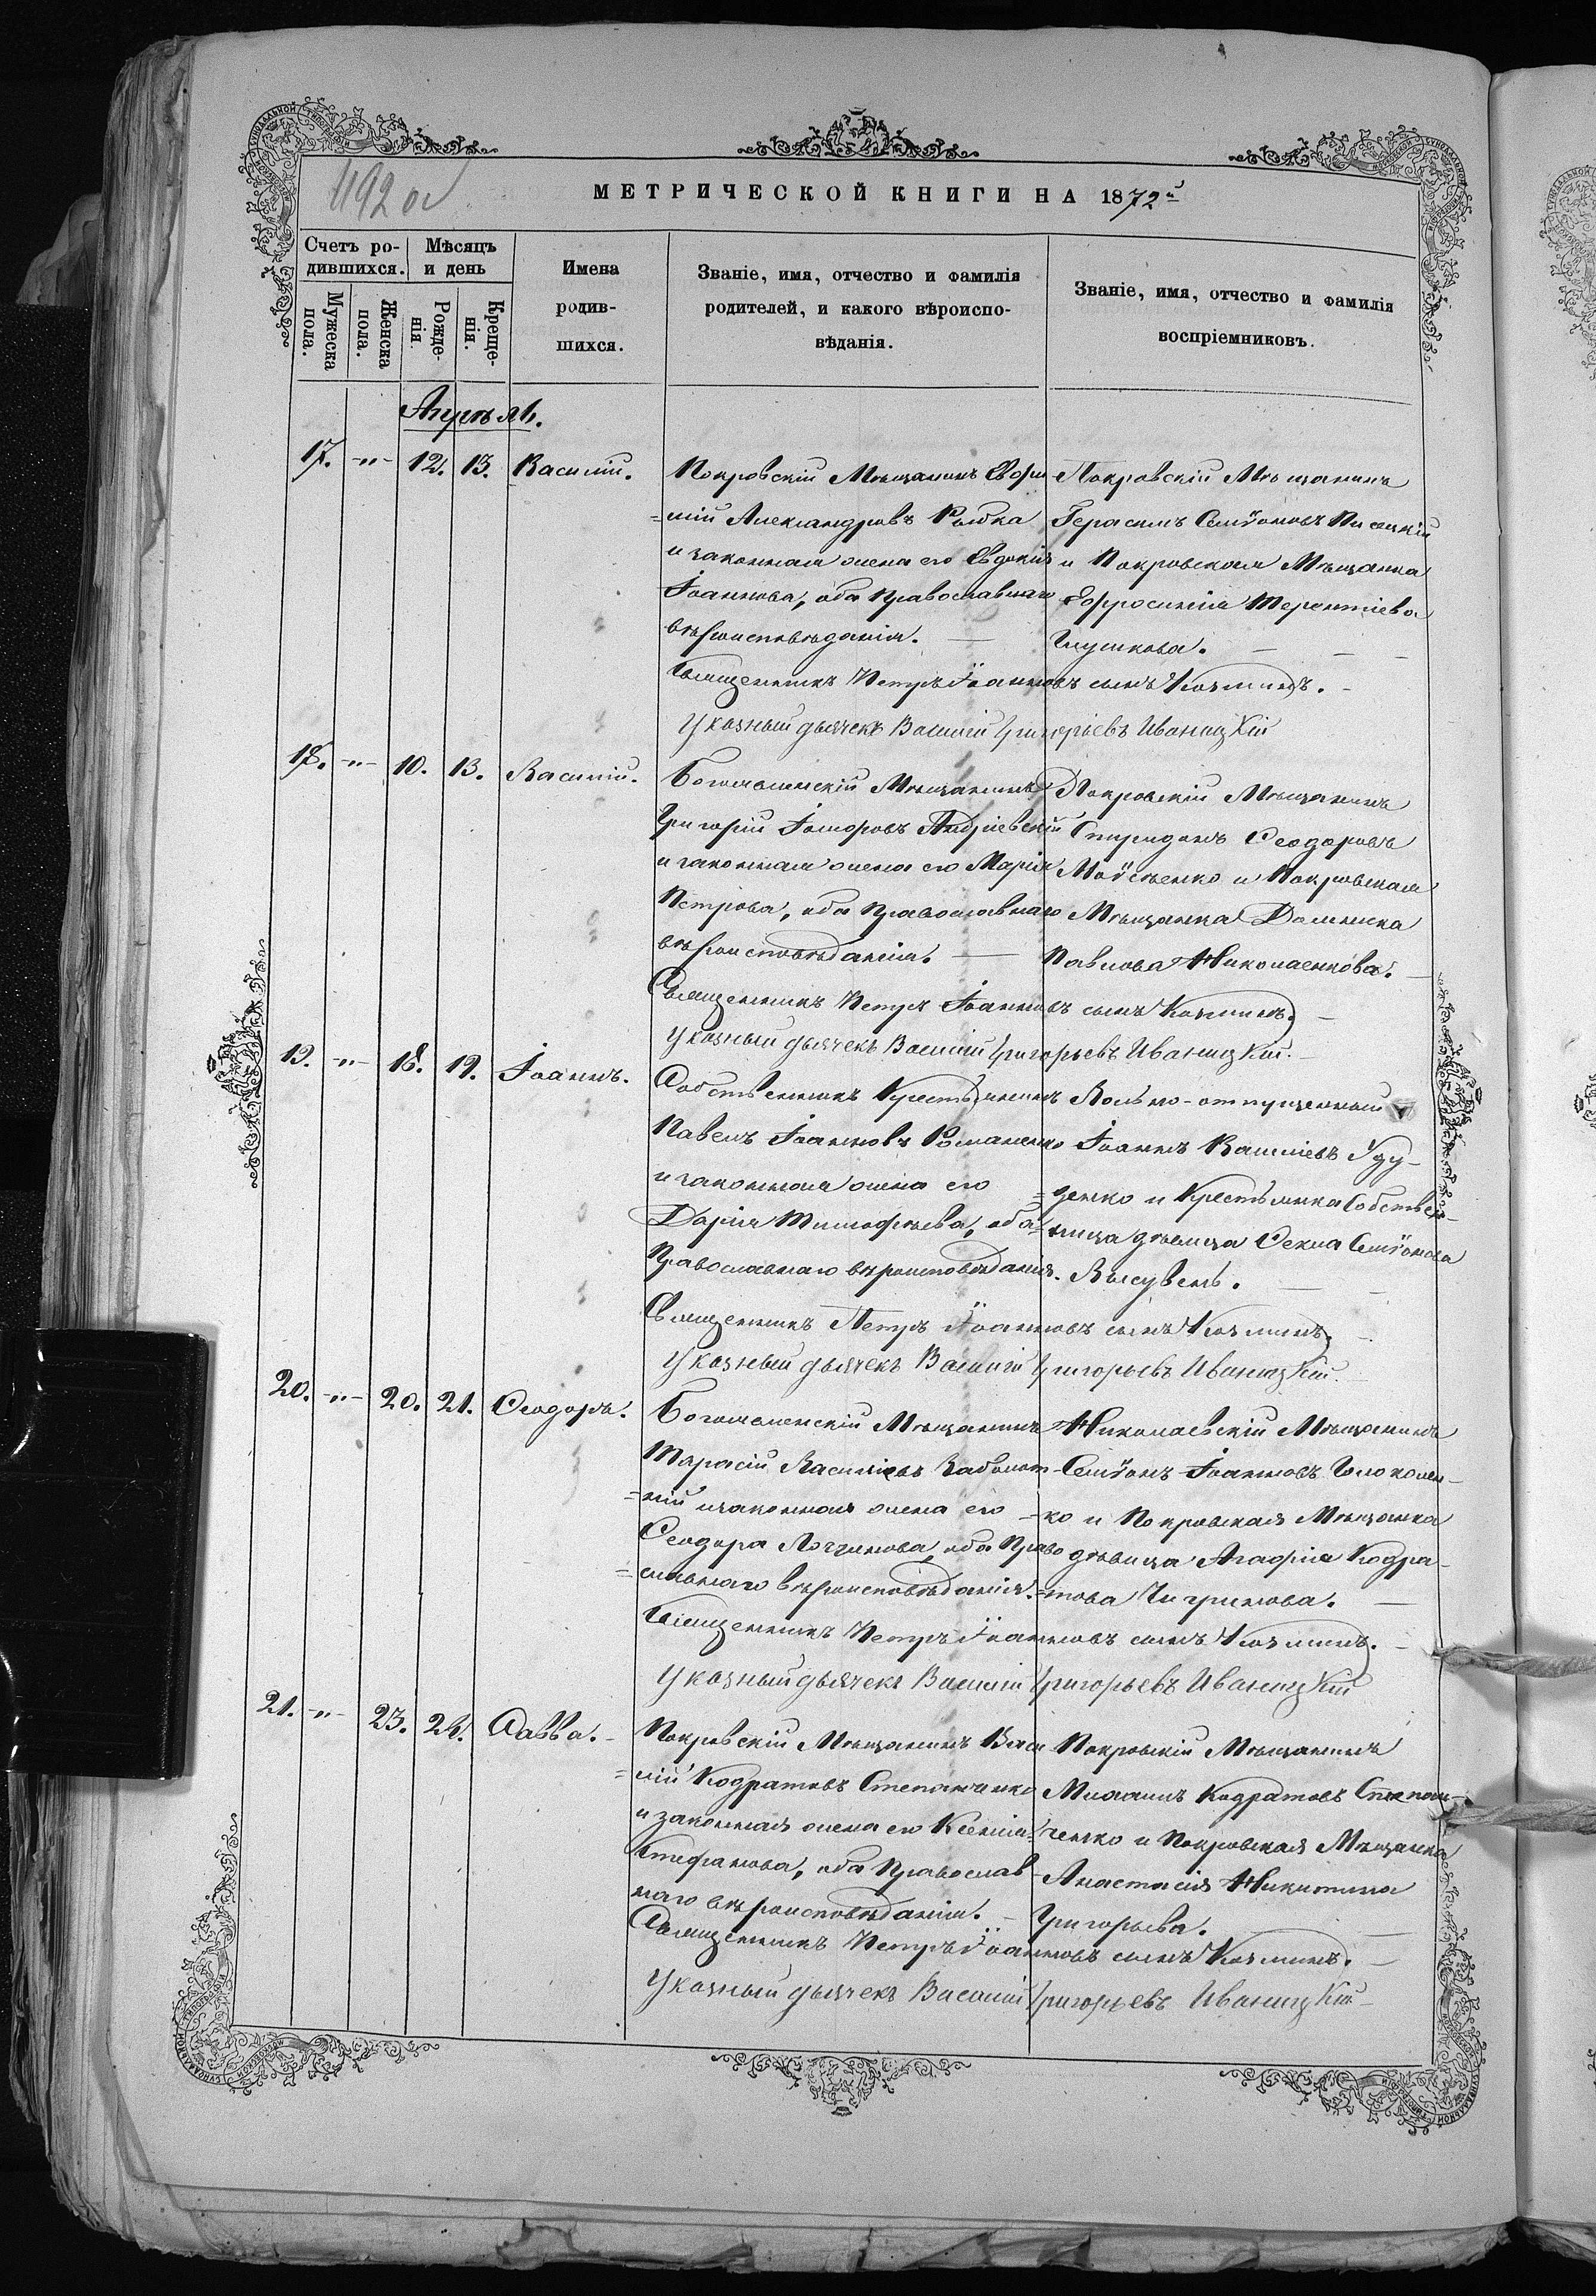 492 об
МЕТРИЧЕСКОЙ КНИГИ НА 1872й
Счетъ ро-
дившихся.
Мѣсяцъ
и день
Мужеска
пола.
Женска
пола.
Рожде-
нія
Креще-
нія.
Имена
родив-
шихся.
Званіе, имя, отчество и фамилія
родителей, и какого вѣроиспо-
вѣданія.
Званіе, имя, отчество и фамилія
воспріемниковъ.
Апрѣль.
17. -"- 12. 13. Василій.
Покровскій Мѣщанинъ Евѳи
=мій Александровъ
и законная жена его Евдокія
Іоаннова, оба Православнаго
вѣроисповѣданія.
Покровскій Мѣщанинъ
Герасимъ Семіоновъ
и Покровская Мѣщанка
Ефросинія Терентіева
Священникъ Петръ Іоанновъ сынъ Козминъ.
Указный дьячекъ Василій Григорьевъ Иваницкій
18. -"- 10. 13. Василій.
Мѣщанинъ
Григорій
и законная жена его Марія
Петрова, оба Православнаго
вѣроисповѣданія.
Покровскій Мѣщанинъ
Спиридонъ Ѳеодоровъ
Моісѣенко и Покровская
Мѣщанка Домника
Павлова Николаенкова.
Священникъ Петръ Іоанновъ сынъ Козминъ.
Указный дьячекъ Василій Григорьевъ Иваницкій.
19. -"- 18. 19. Іоаннъ.
Собственникъ Крестьянинъ
Павелъ Іоанновъ Романенко
и законная жена его
Дарія Тимофѣева, оба
Православнаго вѣроисповѣданія.
Вольно-отпущенный
Іоаннъ Василіевъ Гу-
=денко и Крестьянка Собствен-
=ница дѣвица Ѳекла Семіонова
Священникъ Петръ Іоанновъ сынъ Козминъ.
Указный дьячекъ Василій Григорьевъ Иваницкій.
20. -"- 20. 21. Ѳеодоръ.
Мѣщанинъ
Тарасій Василіевъ Заболот-
=ній и законная жена его
Ѳеодора Логгинова, оба Право
=славнаго вѣроисповѣданія.
Николаевскій Мѣщанинъ
Семіонъ Іоанновъ
-ко и Покровская Мѣщанка
дѣвица Агафія Кодра-
=това Чигринова.
Священникъ Петръ Іоанновъ сынъ Козминъ.
Указный дьячекъ Василій Григорьевъ Иваницкій
21. -"- 23. 24. Савва.
Покровскій Мѣщанинъ Васи
=лій Кодратовъ Степанченко
и законная жена его Ксенія
Стефанова, оба Православ-
наго вѣроисповѣданія.
Покровскій Мѣщанинъ
Михаилъ Кодратовъ Степан-
ченко и Покровская Мѣщанка
Анастасія Никитина
Григорьева.
Священникъ Петръ Іоанновъ сынъ Козминъ.
Указный дьячекъ Василій Григорьевъ Иваницкій